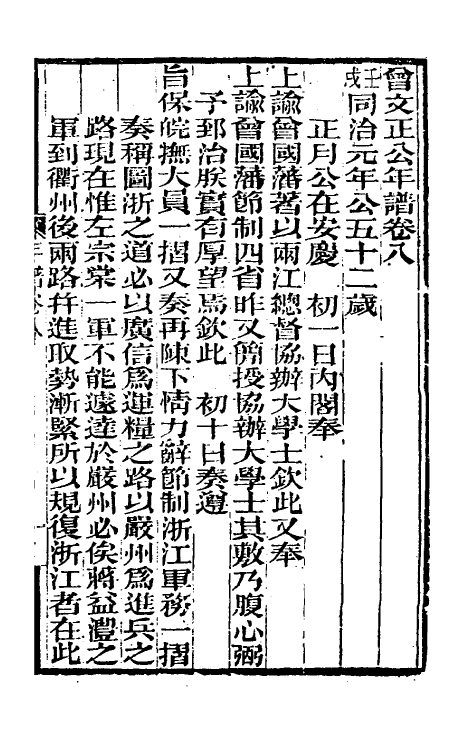 曾文正公年譜卷八
壬戌同治元年公五十二歲
正月公在安慶　初一日內閣奉
上諭曾國藩著以兩江總督協辦大學士欽此又奉
上諭曾國藩節制四省昨又簡授協辦大學士其敷乃腹心弼
予郅治朕實有厚望焉欽此　初十日奏遵
旨保皖撫大員一摺又奏再陳下情力辭節制浙江軍務一摺
奏稱圖浙之道必以廣信爲運糧之路以嚴州爲進兵之
路現在惟左宗棠一軍不能遽達於嚴州必俟蔣益灃之
軍到衢州後兩路幷進取勢漸緊所以規復浙江者在此
年譜卷八